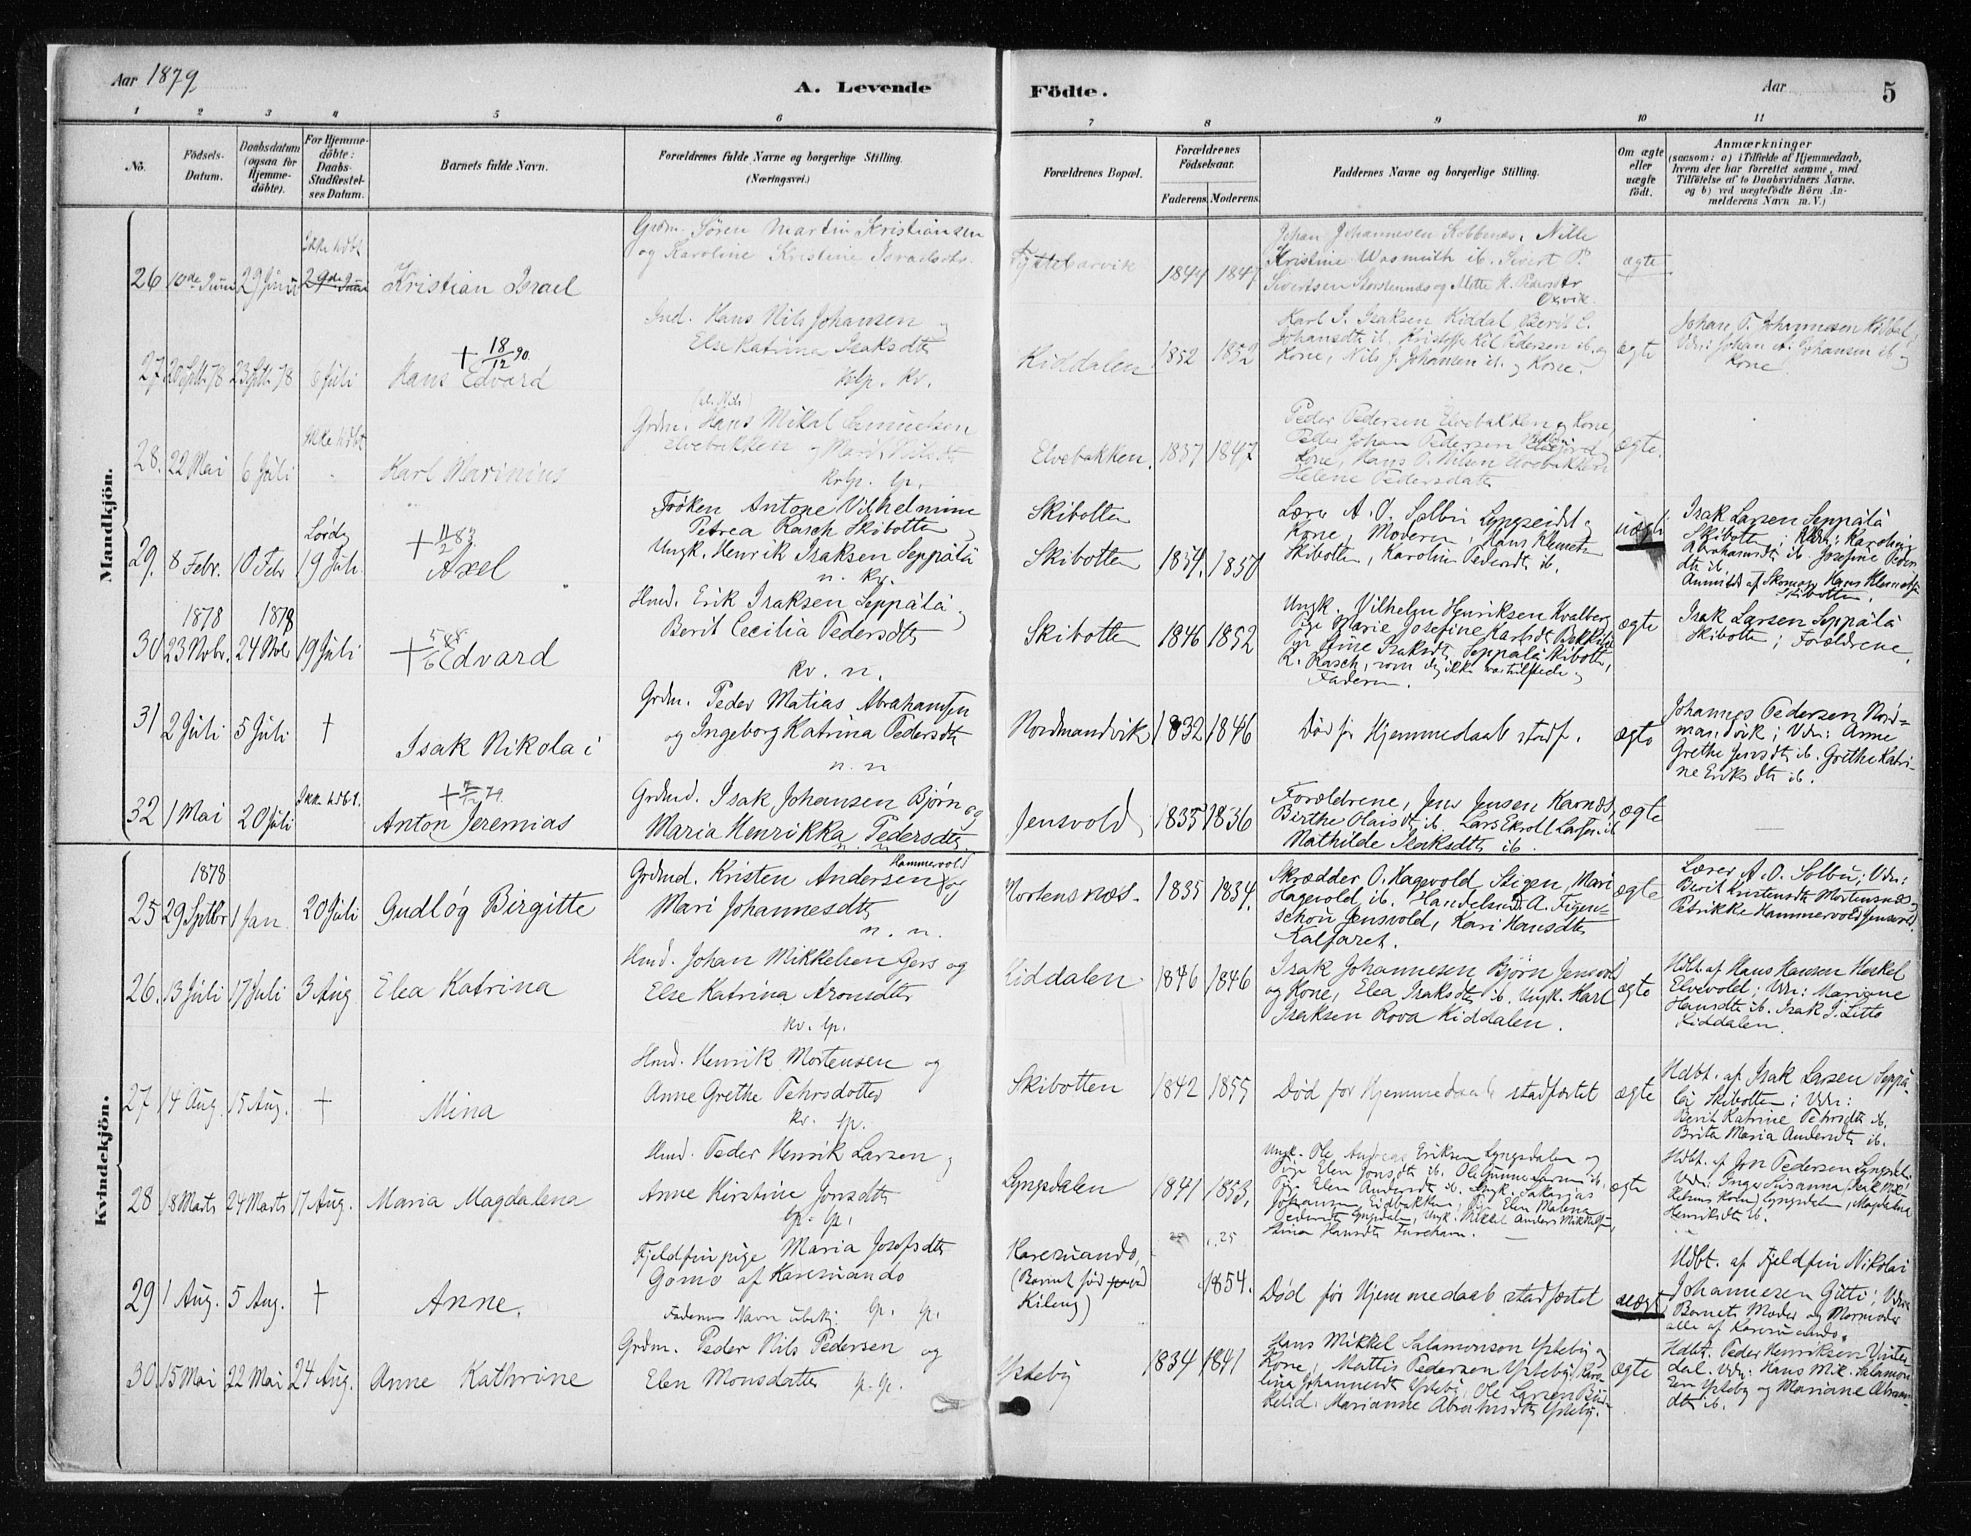 Aar 1879
A. Levende
Födte.
Aar
5
1 2 3 4 5 6 7 8 9 10 11
No.
Födsels-
Datum.
Daabsdatum
(ogsaa for
Hjemme-
döbte).
For Hjemme-
döbte:
Daabs-
Stadfæstel-
ses Datum.
Barnets fulde Navn.
Forældrenes fulde Navne og borgerlige Stilling.
(Næringsvei.)
Forældrenes Bopæl.
Forældrenes
Födselsaar.
Faderens. Moderens.
Faddernes Navne og borgerlige Stilling.
Om ægte
eller
uægte
födt.
Anmærkninger
(saasom: a) i Tilfælde af Hjemmedaab,
hvem der har forrettet samme, med
Tilföielse af to Daabsvidners Navne,
og b) ved uægtefödte Börn An-
melderens Navn m. V.)
Mandkjön.
26 10de Juni 29 Juni
Ikke hdbt
Kristian Israel
Grdm. Sören Martin Kristiansen
og Karoline Kristine Israelsdtr.
1844 1847
Johan Johannesen Kobbnæs, Nille
Kristine Wasmuth ib. Sivert P.
ægte
27 20 Spth 78 23 Spth 78 8 Juli
+ 18/12 90.
Hans Edvard
Ind. Hans Nils Johansen og
Else Katrina Isaksdtr
kv.
Kiddalen
1852 1852
Karl I. Isaksen Kiddal Berit E.
Johansdtr ib. Pedersen ib. og
Kone, Nils J. Johansen ib. og Kone.
ægte
Johan P. Johannesen Kiddal;
Vdn: Johan A. Johansen ib og
Kone.
28. 22 Mai 6 Juli
Ikke hdbt
Karl Marinius
Grdm. Hans Mikal Samuelsen
Elvebakken og
Elvebakken.
1837 1847
Peder Pedersen Elvebakken og Kone,
Peder Johan Pedersen
Kone, Hans O. Nilsen Elvebakken
Helene Pedersdatter
ægte.
29. 8 Febr. 10 Febr
19 Juli
Axel
Fröken Antone Vilhelmine
Petrea Rasch Skibotten
Ungk. Henrik Isaksen Seppälä
n. kv.
Skibotten
Skibotten
1854. 1850
Lærer A. O. Solbu Lyngseidet og
Kone, Moderen, Hans Klemetsen
Skibotten, Karolin Pedersdtr ib.
uægte
Isak Larsen Seppälä
Skibotten; Vdn: Karoline
Abrahamsdtr ib. Josefine Peders
dtr ib.
Anmeldt af Hans Klemetsen
Skibotten.
1878 1878
30 23 Novbr. 24 Nov 19 Juli
Edvard
Hmd. Erik Isaksen Seppälä og
Berit Cecilia Pedersdtr
kv. n.
Skibotten
1846 1852
Ungk. Vilhelm Henriksen Kvalberg
Pige Marie Josefine Karlsdtr
Pige Stine Isaksdtr Seppälä Skibotten,
R. Rasch, som dog ikke var tilstede og
Faderen.
ægte
Isak Larsen Seppälä
Skibotten; Forældrene.
31 2 Juli 5 Juli †
Isak Nikolai
Grdm. Peder Matias Abrahamsen
og Ingeborg Katrina Pedersdtr
n. n
Nordmandvik
1832 1846
Död för Hjemmedaab stadf.
ægte
Johannes Pedersen Nord-
mandvik; Vdn: Anne
Grethe Jensdtr ib. Grethe Katri-
ne Eriksdtr ib.
32 1 Mai 20 Juli
Ikke hdbt.
Anton Jeremias
Grdmd. Isak Johansen Bjørn og
Maria Henrikka Pedersdtr.
n n
Jensvold
1835 1836
Forældrene, Jens Jensen Karnæs,
Birthe Olaisdtr ib. Lars Ekroll Larsen ib
Mathilde Isaksdtr ib.
ægte
Kvindekjön.
1878
25 29 Septbr 1 Jan. 20 Juli
Gudløg Birgitte
Grdmd. Kristen Andersen Hammervold og
Mari Johannesdtr
n. n.
Mortensnæs.
1835 1834.
Skrædder O. Hagevold Stigen, Mari
Hagevold ib. Handelsmd A. Figen-
schou Jensvold, Kari Hansdtr
Kalfaret.
ægte
Lærer A. O. Solbu; Vdn:
Berit Kristensdtr Mortensnæs og
Petrikke Hammervold Jensvold.
26. 13 Juli 17 Juli 3 Aug
Elea Katrina
Hmd. Johan Mikkelsen Gers og
Else Katrina Aronsdtr
kv. lp.
Kiddalen
1846 1846
Isak Johannesen Bjørn Jensvold
og Kone, Elea Isaksdtr ib. Ungk. Karl
Isaksen Rova Kiddalen.
ægte
Hdbt. af Hans Hansen Heskel
Elvevold; Vdn: Mariane
Hansdtr ib. Isak J. Litto
Kiddalen.
27 14 Aug. 15 Aug. †
Mina
Hmd. Henrik Mortensen og
Anne Grethe Pehrsdotter
kv. lp.
Skibotten
1842 1855
Död for Hjemmedaab stadfæstet
ægte
Hdbt. af Isak Larsen Seppä-
lä Skibotten; Vdn:
Berit Katrine Pehrsdtr ib.
Brita Maria Andersdtr ib.
28 18 Marts 24 Marts 17 Aug.
Maria Magdalena
Hmd. Peder Henrik Larsen og
Anne Kirstine Jonsdtr
lp. lp.
Lyngsdalen
1841 1853.
Ungk. Ole Andreas Eriksen Lyngsdalen og
Pige Elen Jonsdtr ib. Ole Gunnar Larsen ib.
Pige Elen Andersdtr ib. Ungk. Sakarias
Johansen Eidbakken, Pige Elen Malena
Pedersdtr Lyngsdalen, Ungk. Mikkel Anders Mikkelsen,
Stina Hansdtr
ægte
Hdbt. af Jon Pedersen Lyngsdal.
Vdn: Inger Susanna (Isak Mik-
kelsens Kone) Lyngsdalen, Magdalena
Henriksdtr ib.
29 1 Aug. 5 Aug. †
Anne.
Fjeldfinpige Maria Josefsdtr
Gomo af Karesuando
Faderens Navn ubekj. lp. lp.
Karesuando,
(Barnet föd ved
Kileng)
1854.
Död för Hjemmedaab stadfæstet
uægte
Hdbt. af Fjeldfin Nikolai
Johannesen Gitti; Vdn:
Barnets Moder og Mormoder
alle af Karesuando.
30 15 Mai 22 Mai 24 Aug.
Anne Kathrine
Grdm. Peder Nils Pedersen og
Elen Monsdatter lp. lp.
Ysteby
1834 1841
Hans Mikkel Salamonsen Ysteby og
Kone, Mattis Pedersen Ysteby, Karo-
lina Johannesdtr Ysteby, Ole Larsen
Marianne Abrahmsdtr Ysteby.
ægte
Hdbt. Peder Henriksen Vinter
dal. Vdn: Hans Mik. Salamon
sen Ysteby og Mariane Abraam
dtr ib.